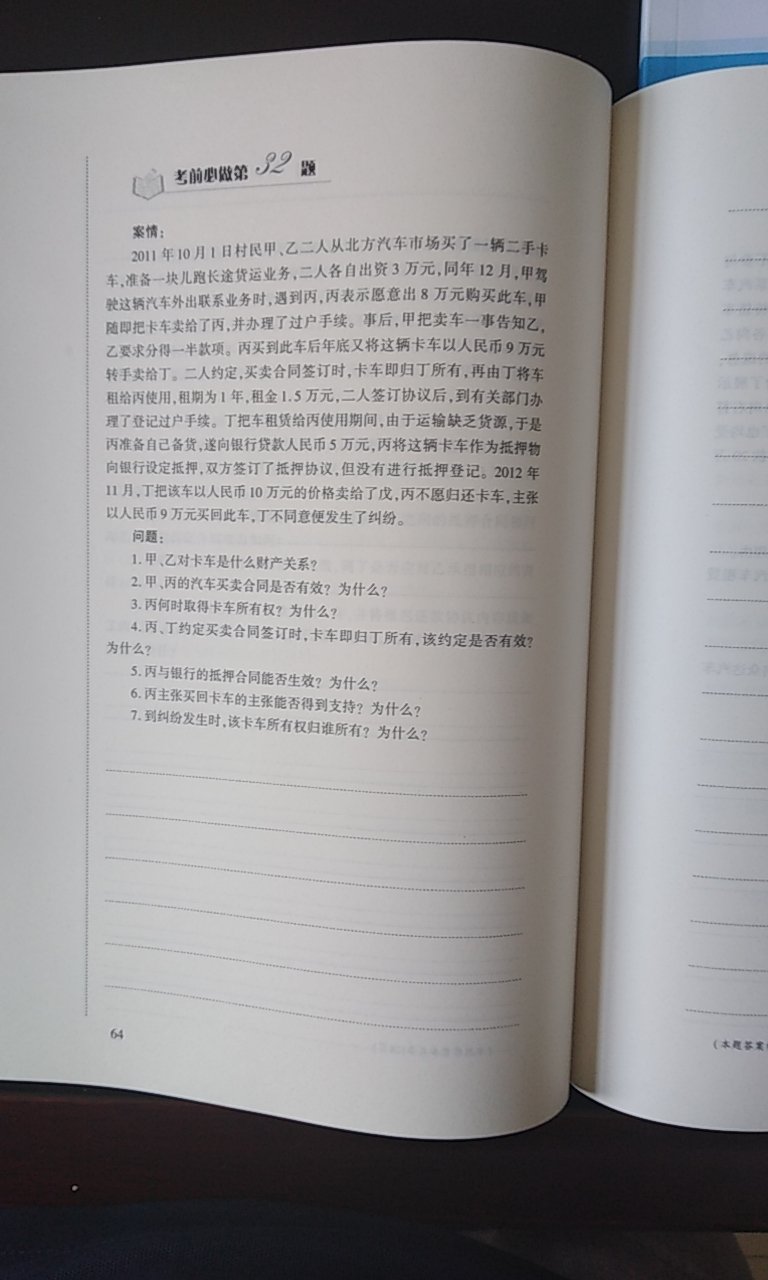 考前必做第 32 题
案情：
2011年10月1日村民甲、乙二人从北方汽车市场买了一辆二手卡
车，准备一块儿跑长途货运业务，二人各自出资3万元，同年12月，甲驾
驶这辆汽车外出联系业务时，遇到丙，丙表示愿意出8万元购买此车，甲
随即把卡车卖给了丙，并办理了过户手续。事后，甲把卖车一事告知乙，
乙要求分得一半款项。丙买到此车后年底又将这辆卡车以人民币9万元
转手卖给丁。二人约定，买卖合同签订时，卡车即归丁所有，再由丁将车
租给丙使用，租期为1年，租金1.5万元，二人签订协议后，到有关部门办
理了登记过户手续。丁把车租赁给丙使用期间，由于运输缺乏货源，于是
丙准备自己备货，遂向银行贷款人民币5万元，丙将这辆卡车作为抵押物
向银行设定抵押，双方签订了抵押协议，但没有进行抵押登记。2012年
11月，丁把该车以人民币10万元的价格卖给了戊，丙不愿归还卡车，主张
以人民币9万元买回此车，丁不同意便发生了纠纷。
问题：
1.甲、乙对卡车是什么财产关系？
2.甲、丙的汽车买卖合同是否有效？为什么？
3.丙何时取得卡车所有权？为什么？
4.丙、丁约定买卖合同签订时，卡车即归丁所有，该约定是否有效？
为什么？
5.丙与银行的抵押合同能否生效？为什么？
6.丙主张买回卡车的主张能否得到支持？为什么？
7.到纠纷发生时，该卡车所有权归谁所有？为什么？
64
（本题答案